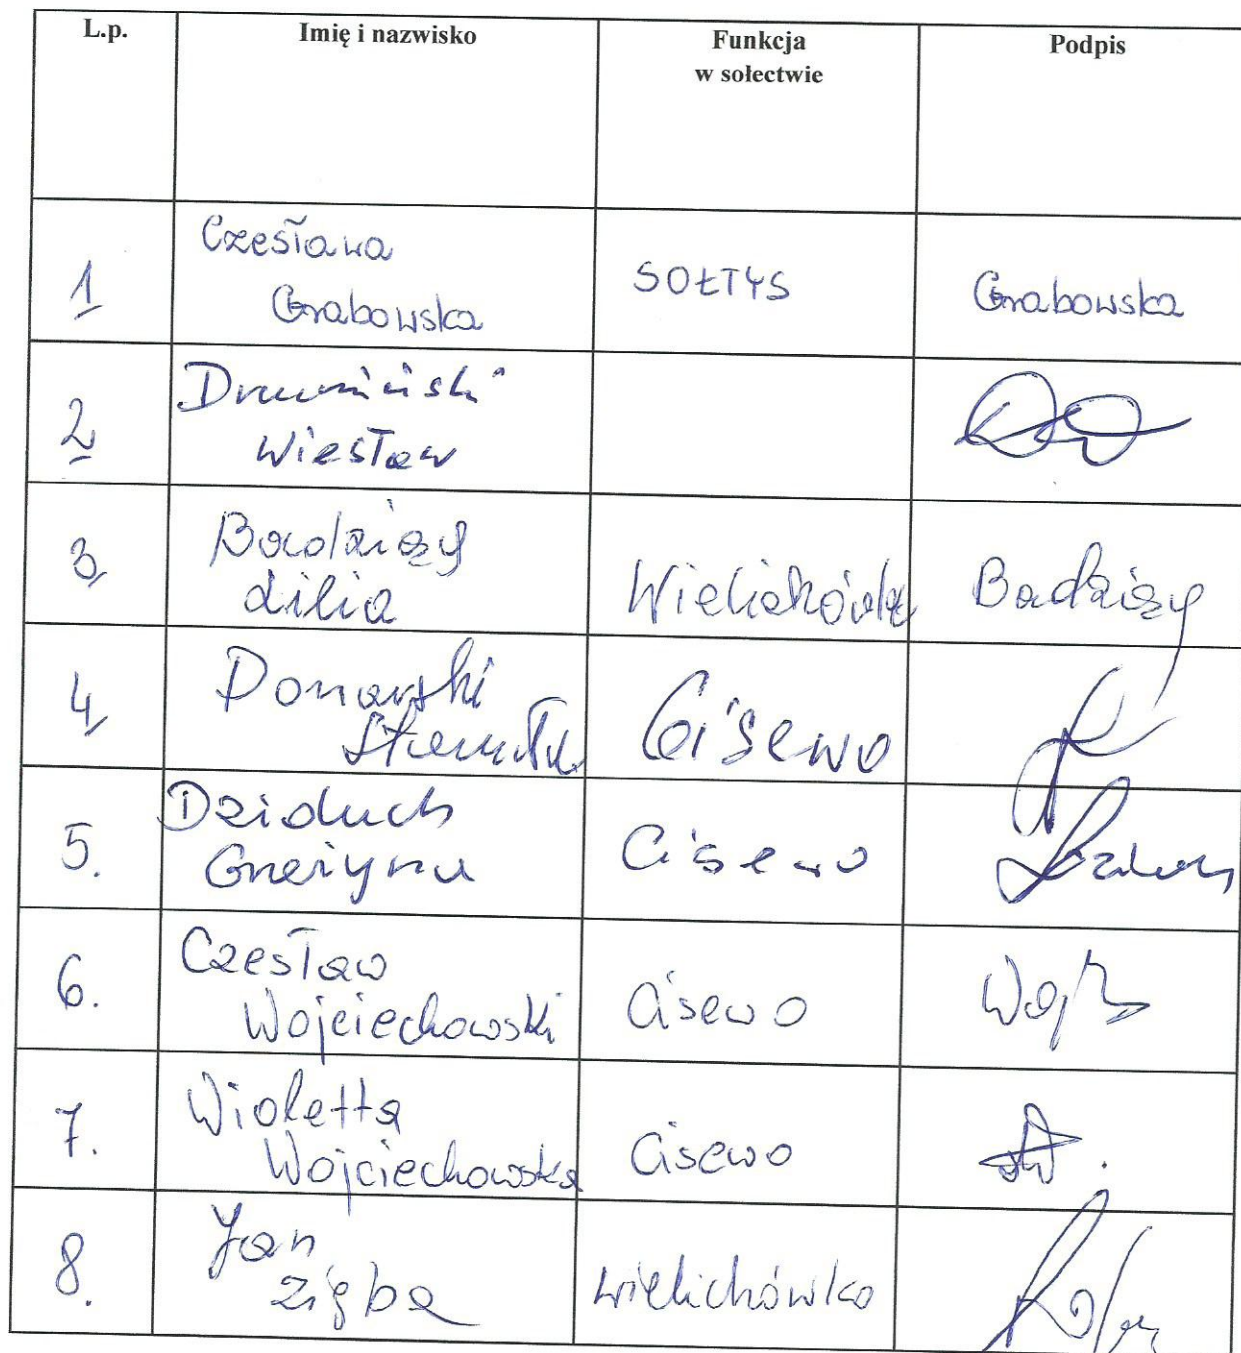 L.p. Imię i nazwisko Funkcja w sołectwie Podpis
1 Czesława Grabowska SOŁTYS Grabowska
2 Wiesław
3 Badziąg Lilia Wielichówko Badziąg
4 Cisewo
5. Dziduch Grażyna Cisewo
6. Czesław Wojciechowski Cisewo
7. Wioletta Wojciechowska Cisewo
8. Jan Zięba Wielichówko